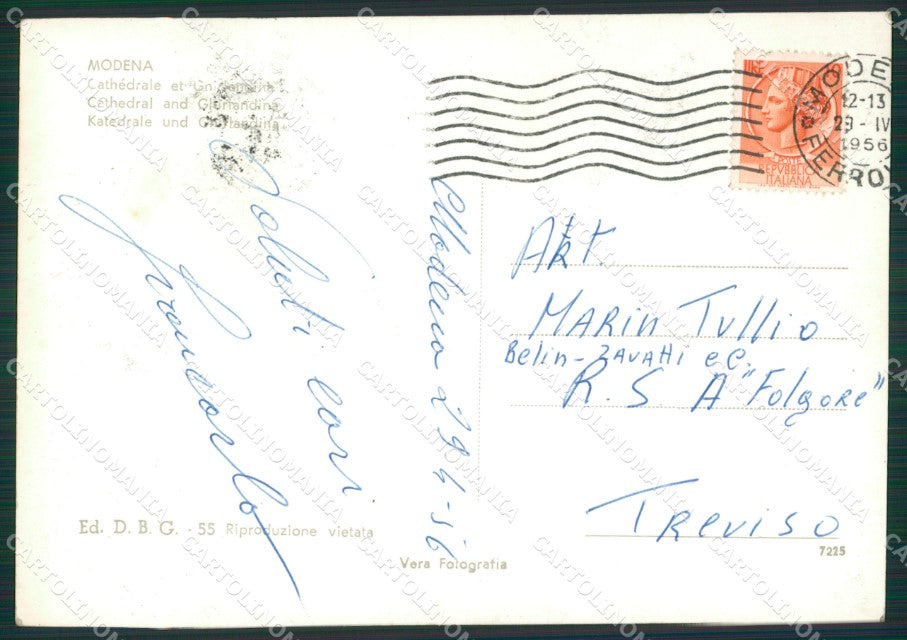 MODENA
Cathédrale et Ghirlandina
Cathedral and Ghirlandina
Katedrale und Ghirlandina
POSTE
REPVBBLICA
ITALIANA
12-13
29-IV
1956
FERROV
Modena 29 4-56
Saluti cari
Akt.
MARin Tullio
Belin-ZAVAtti e C.
R. S A "Folgore"
TREviso
Ed. D. B. G. - 55 Riproduzione vietata
Vera Fotografia
7225
CARTOLINOMANIA